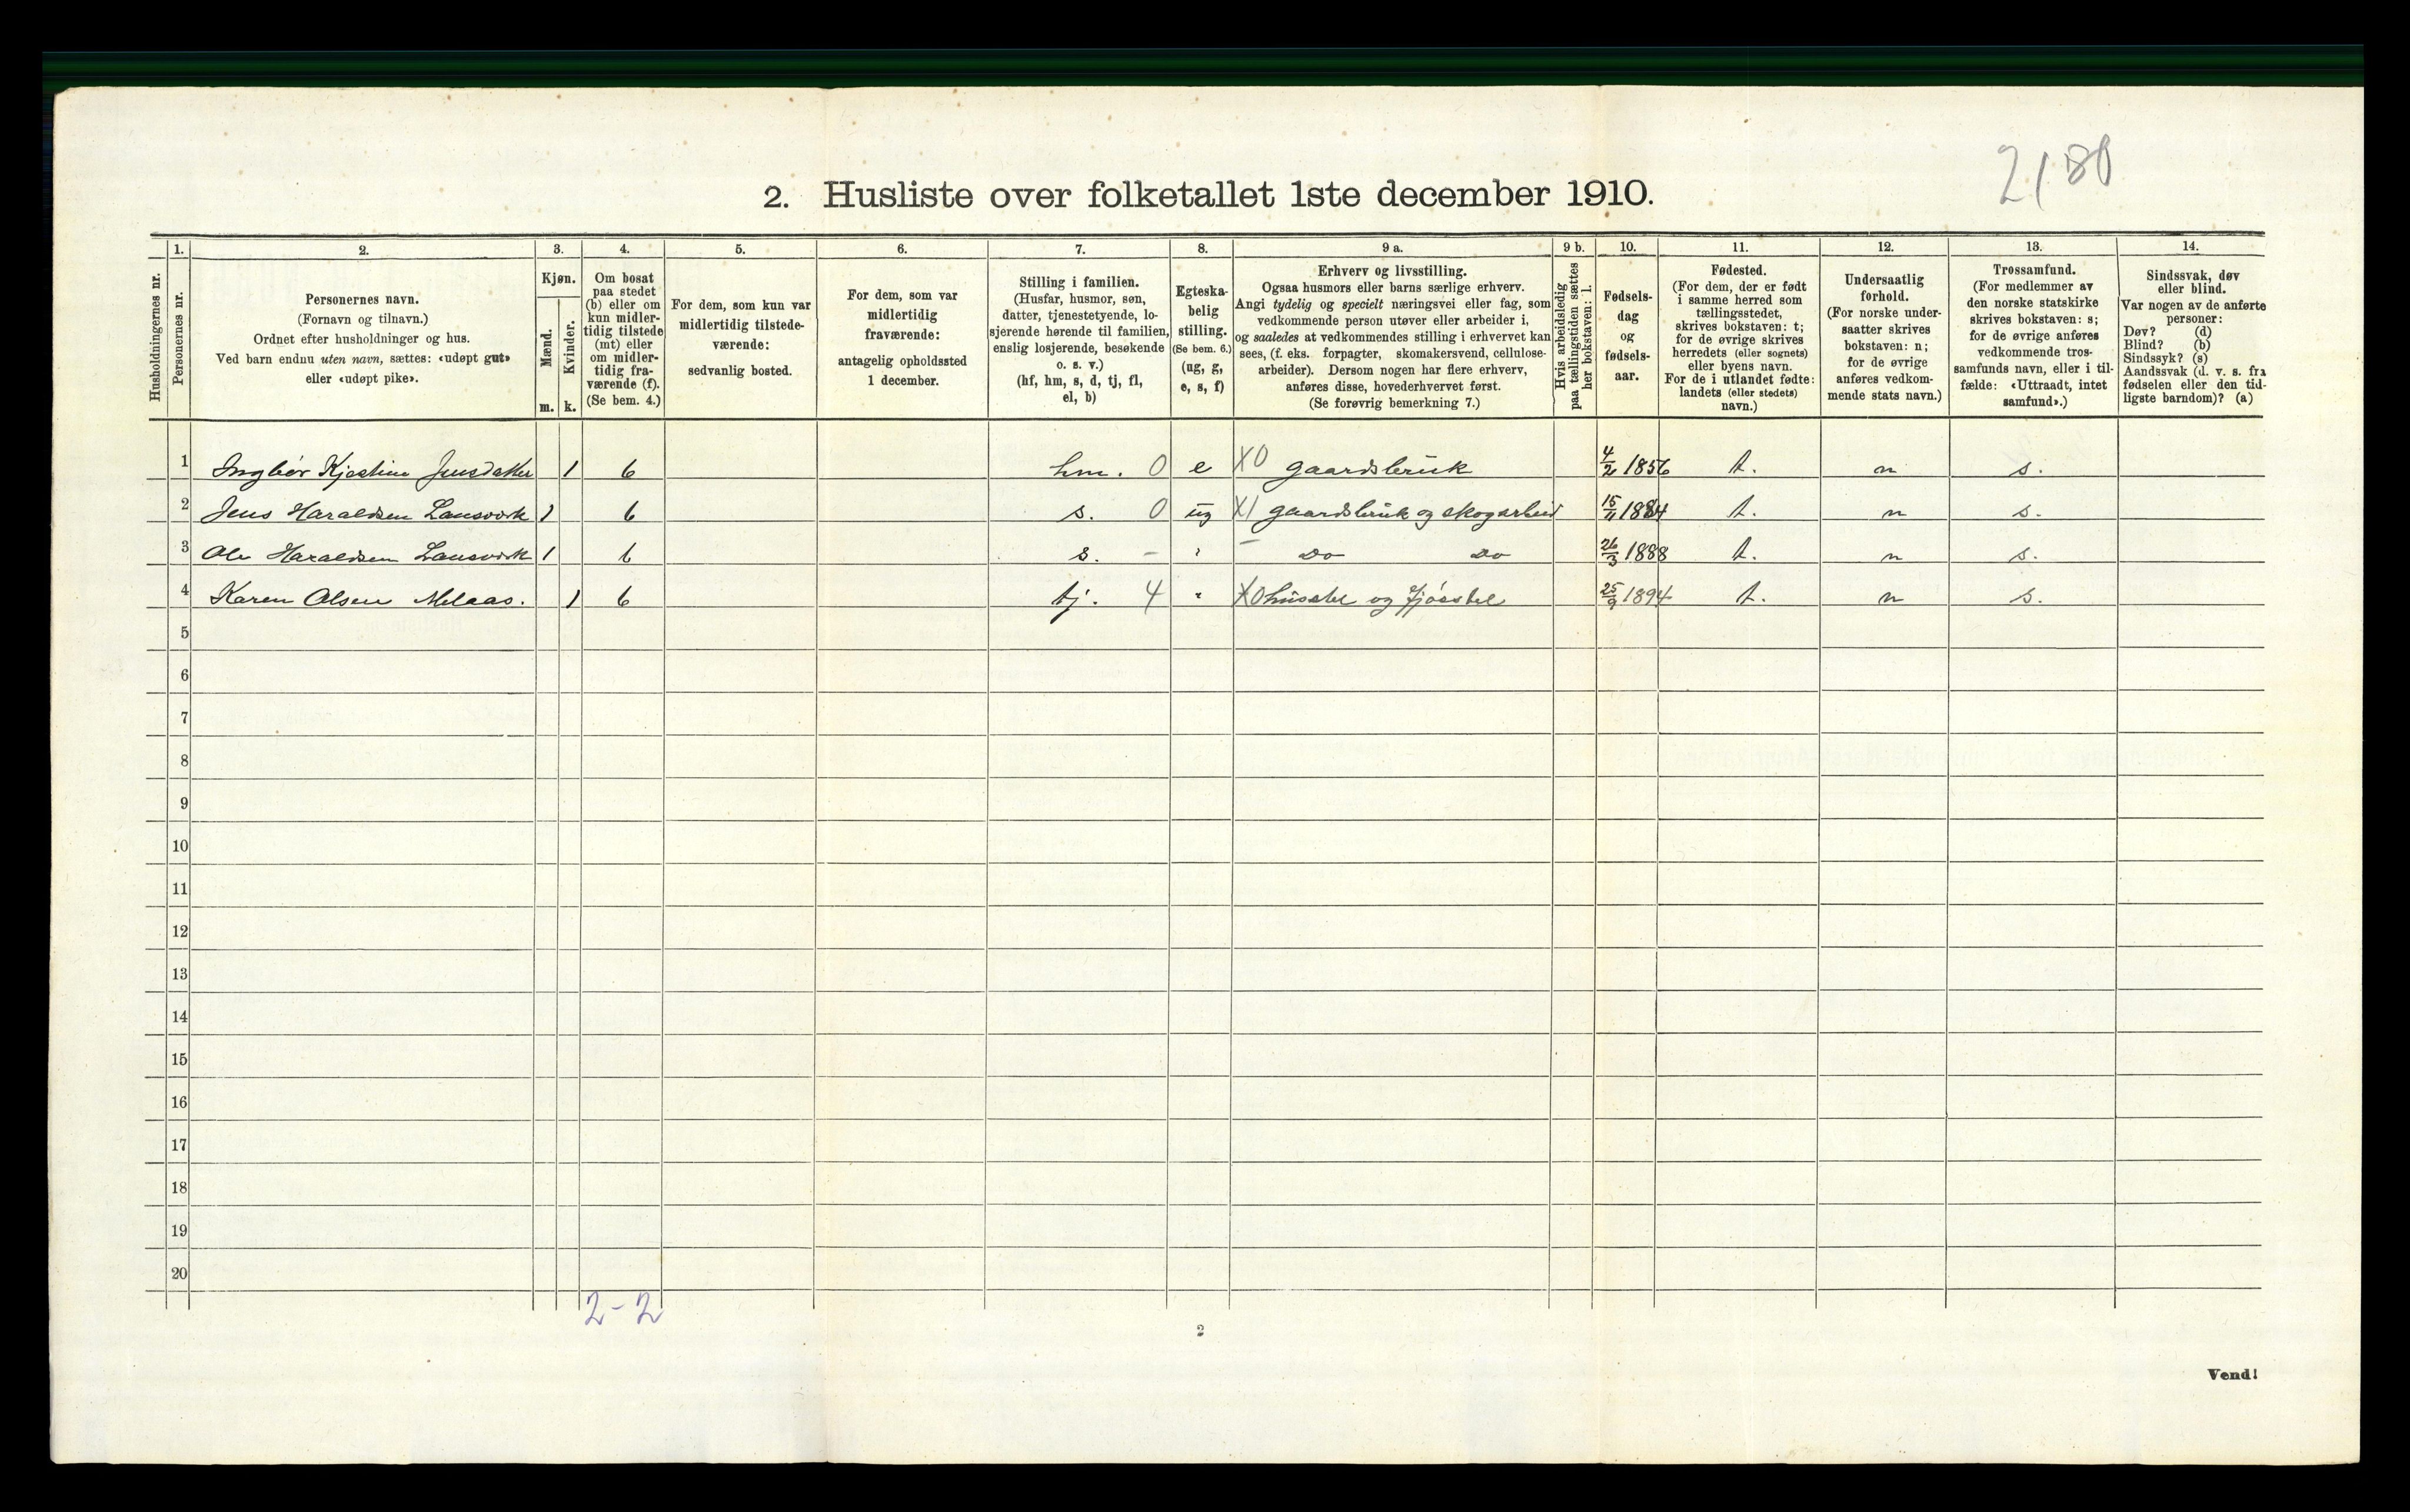 2180
2. Husliste over folketallet 1ste december 1910.
Husholdningernes nr.
1. Personernes nr.
2. Personernes navn.
(Fornavn og tilnavn.)
Ordnet efter husholdninger og hus.
Ved barn endnu uten navn, sættes: «udøpt gut»
eller «udøpt pike».
3. Kjøn.
Mænd. m.
Kvinder. k.
4. Om bosat
paa stedet
(b) eller om
kun midler-
tidig tilstede
(mt) eller
om midler-
tidig fra-
værende (f).
(Se bem. 4.)
5. For dem, som kun var
midlertidig tilstede-
værende:
sedvanlig bosted.
6. For dem, som var
midlertidig
fraværende:
antagelig opholdssted
1 december.
7. Stilling i familien.
(Husfar, husmor, søn,
datter, tjenestetyende, lo-
sjerende hørende til familien,
enslig losjerende, besøkende
o. s. v.)
(hf, hm, s, d, tj, fl,
el, b)
8. Egteska-
belig
stilling.
(Se bem. 6.)
(ug, g,
e, s, f)
9 a. Erhverv og livsstilling.
Ogsaa husmors eller barns særlige erhverv.
Angi tydelig og specielt næringsvei eller fag, som
vedkommende person utøver eller arbeider i,
og saaledes at vedkommendes stilling i erhvervet kan
sees, (f. eks. forpagter, skomakersvend, cellulose-
arbeider). Dersom nogen har flere erhverv,
anføres disse, hovederhvervet først.
(Se forøvrig bemerkning 7.)
9 b. Hvis arbeidsledig
paa tællingstiden sættes
her bokstaven: l.
10. Fødsels-
dag
og
fødsels-
aar.
11. Fødested.
(For dem, der er født
i samme herred som
tællingsstedet,
skrives bokstaven: t;
for de øvrige skrives
herredets (eller sognets)
eller byens navn.
For de i utlandet fødte:
landets (eller stedets)
navn.)
12. Undersaatlig
forhold.
(For norske under-
saatter skrives
bokstaven: n;
for de øvrige
anføres vedkom-
mende stats navn.)
13. Trossamfund.
(For medlemmer av
den norske statskirke
skrives bokstaven: s;
for de øvrige anføres
vedkommende tros-
samfunds navn, eller i til-
fælde: «Uttraadt, intet
samfund».)
14. Sindssvak, døv
eller blind.
Var nogen av de anførte
personer:
Døv? (d)
Blind? (b)
Sindssyk? (s)
Aandssvak (d. v. s. fra
fødselen eller den tid-
ligste barndom)? (a)
1 Ingbör Kjestine Jensdatter 1 b hm. 0 e X0 gaardsbruk 4/2 1856 t. n s.
2 Jens Haraldsen Lansverk 1 b s. 0 ug X1 gaardsbruk og skogarbeid 15/11 1884 t. n s.
3 Ole Haraldsen Lansverk 1 b s. - " - Do Do 26/3 1888 t. n s.
4 Karen Olsen Melaas. 1 b tj. 4 " X0 husstel og fjösstel 25/9 1894 t. n s.
5
6
7
8
9
10
11
12
13
14
15
16
17
18
19
20
2-2
2
Vend!